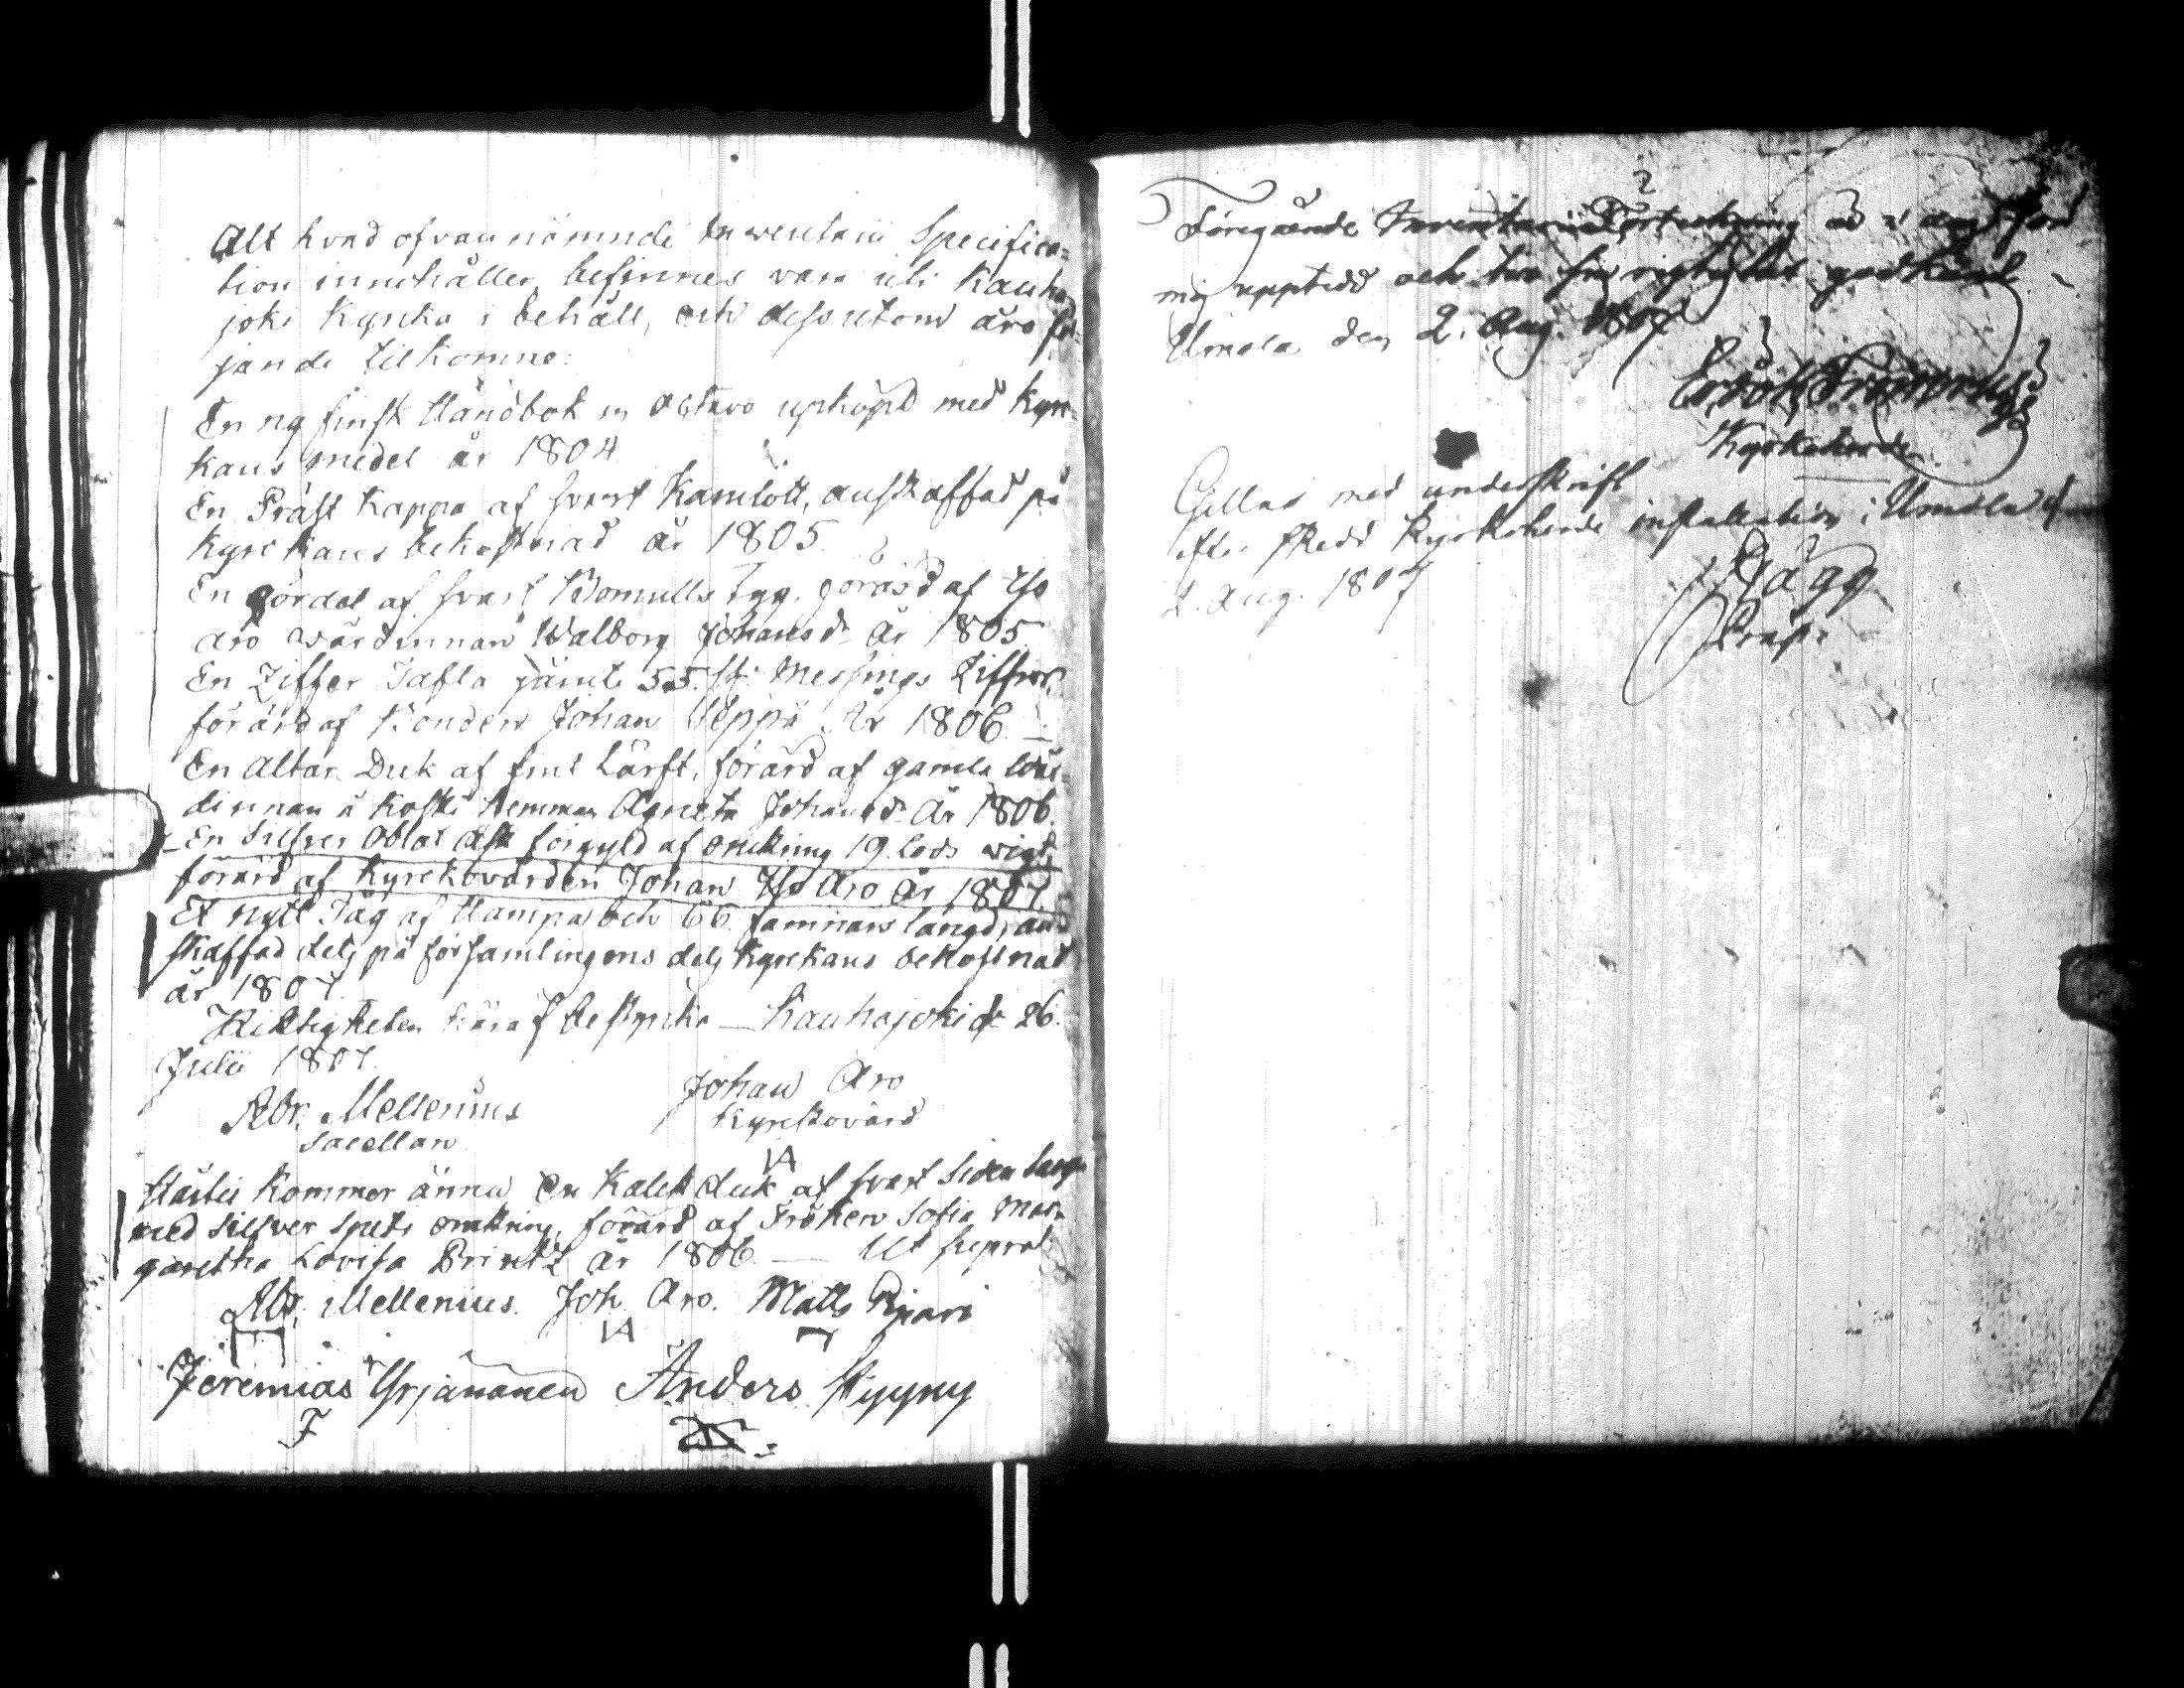 Alt hvad ofvannämnde Inventarii Specifica=
tion innehåller, befinnes vara uti Kauha
joki Kyrcka i behåll, och dessutom äro föl=
jande tilkomne:
En ny finsk Handbok in Octavo upköpt med Kyrc
kans medel år 1804
En Präst Kappa af svart Kamlott, anskaffad på
Kyrckans bekostnad år 1805.
En gördel af svart Bomulls Tyg, förärd af Yso
Aro wärdinnan Walborg Johansd:r år 1805.
En Ziffer Tafla jämte 55. st: Messings Ziffror,
förärd af Bonden Johan Seppä År 1806. —
En Altar Duk af fint Lärft, förärd af gamla wär=
dinnan å Koski hemman Agneta Johansd:r År 1806.
En Silfver Oblat Ask förgyld af omkring 19 lods wigt,
förärd af Kyrckovärden Johan Yso Aro år 1807.
Et nytt Tåg af Hampa och 66. famnars längd, an=
skaffad dels på församlingens dels Kyrckans bekostnad
år 1807.
Riktigheten häraf bestyrcka — Kauhajoki d: 26.
Julii 1807.
Abr. Mellenius
Johan Aro
Sacellan
Kyrckovärd
IA
Härtil kommer ännu en Kalk duk af svart Siden
med silfver spets omkring, förärd af Fröken Sofia Mar=
garetha Lovisa Printz år 1806. — Ut supra
Abr. Mellenius. Joh. Aro. Matts
IA
Jeremias Yrjänänen Anders Hyyny
F
Föregående Inventarii Förtekning är i dag för
mig uppteed och til sin rigtighet godkänd
Umola den 2. Aug. 1807
Kyrkoherde.
Gillas med underskrift
efter skedd Kyrkoherde installation i Umola d
2. Aug. 1807
Hägg
Præp.